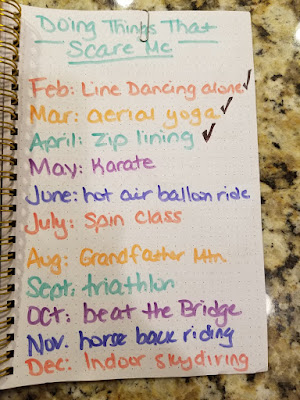 Doing Things That
Scare Me
Feb: Line Dancing alone
Mar: aerial yoga
April: Zip lining
May: Karate
June: hot air balloon ride
July: Spin Class
Aug: Grandfather Mtn.
Sept: triathlon
Oct: beat the Bridge
Nov. horse back riding
Dec: Indoor skydiving